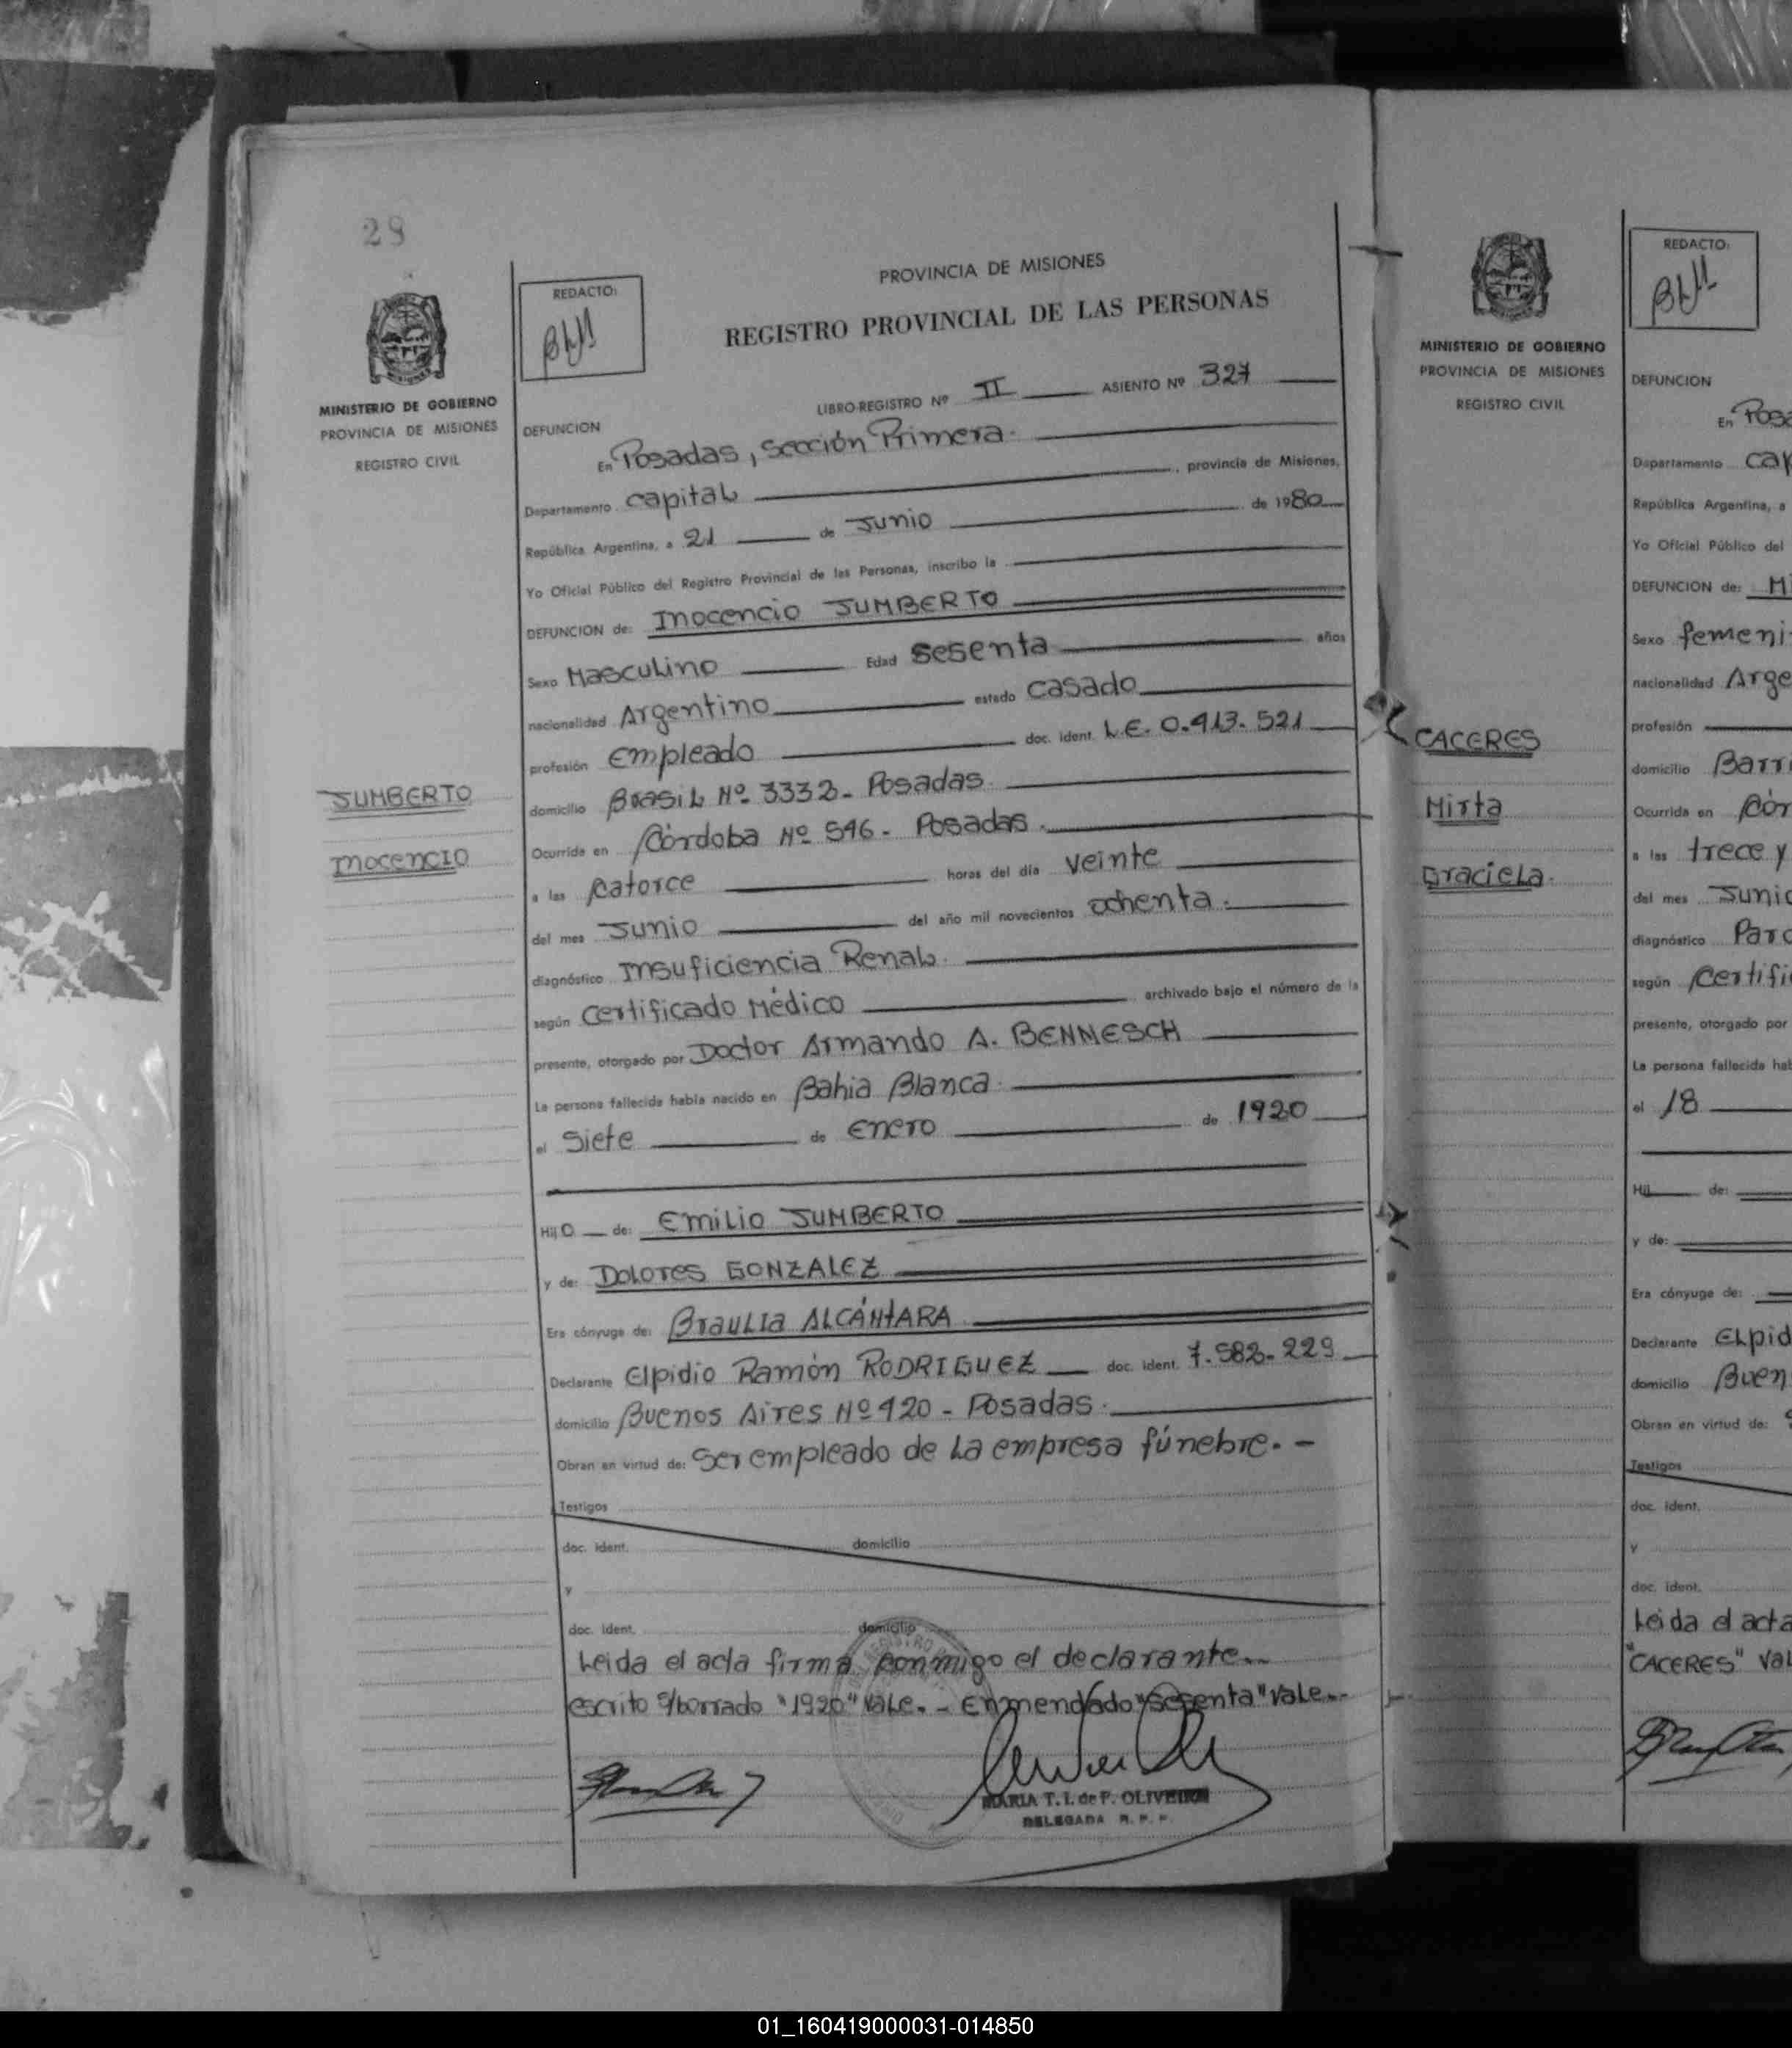 28
MINISTERIO DE GOBIERNO
PROVINCIA DE MISIONES
REGISTRO CIVIL
SUMBERTO
Inocencio
REDACTO:
PROVINCIA DE MISIONES
REGISTRO PROVINCIAL DE LAS PERSONAS
LIBRO-REGISTRO Nº II ASIENTO Nº 327
DEFUNCION
En Posadas, Sección Primera.
Departamento Capital, provincia de Misiones,
República Argentina, a 21 de Junio de 1980
Yo Oficial Público del Registro Provincial de las Personas, inscribo la
DEFUNCION de: Inocencio SUMBERTO
Sexo Masculino Edad Sesenta años
nacionalidad Argentino estado Casado
profesión Empleado doc. ident. L.E. 0.413.521
domicilio Brasil Nº 3332- Posadas.
Ocurrida en Córdoba Nº 546- Posadas.
a las Catorce horas del día veinte
del mes Junio del año mil novecientos ochenta.
diagnóstico Insuficiencia Renal.
según Certificado Médico archivado bajo el número de la
presente, otorgado por Doctor Armando A. BENMESCH
La persona fallecida había nacido en Bahia Blanca.
el Siete de Enero de 1920
Hij o de: Emilio SUMBERTO
y de: Dolores GONZALEZ
Era cónyuge de: Braulia ALCÁNTARA
Declarante Elpidio Ramón RODRIGUEZ doc. ident. 7.582-229
domicilio Buenos Aires Nº 420 - Posadas.
Obran en virtud de: Ser empleado de la empresa fúnebre.-
Testigos
doc. ident. domicilio
y
doc. ident. domicilio
Leida el acta firma conmigo el declarante.-
escrito s/borrado "1920" Vale.- Enmendado "Sesenta" Vale.-
MARIA T. I. de P. OLIVEIRA
DELEGADA R. P. P.
MINISTERIO DE GOBIERNO
PROVINCIA DE MISIONES
REGISTRO CIVIL
CACERES
Mirta
Graciela.
REDACTO:
DEFUNCION
En Posa
Departamento Cap
República Argentina, a
Yo Oficial Público del
DEFUNCION de: Mi
Sexo femeni
nacionalidad Arge
profesión
domicilio Barri
Ocurrida en Cór
a las trece y
del mes Junio
diagnóstico Paro
según Certifi
presente, otorgado por
La persona fallecida hab
el 18
Hij de:
y de:
Era cónyuge de:
Declarante Elpid
domicilio Buen
Obran en virtud de: S
Testigos
doc. ident.
y
doc. ident.
Leida el acta
"CACERES" Val
01_160419000031-014850